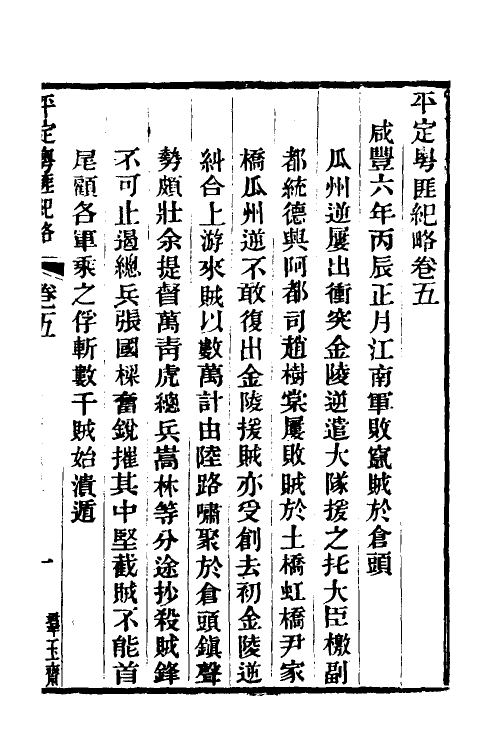 平定粵匪紀略卷五
咸豐六年丙辰正月江南軍敗竄賊於倉頭
瓜州逆屢出衝突金陵逆遣大隊援之托大臣檄副
都統德興阿都司趙樹棠屢敗賊於土橋虹橋尹家
橋瓜州逆不敢復出金陵援賊亦受創去初金陵逆
糾合上游來賊以數萬計由陸路嘯聚於倉頭鎮聲
勢頗壯余提督萬靑虎總兵嵩林等分途抄殺賊鋒
不可止遏總兵張國樑奮銳摧其中堅截賊不能首
尾顧各軍乘之俘斬數千賊始潰遁
平定粵匪紀略
卷五
一
羣玉齋